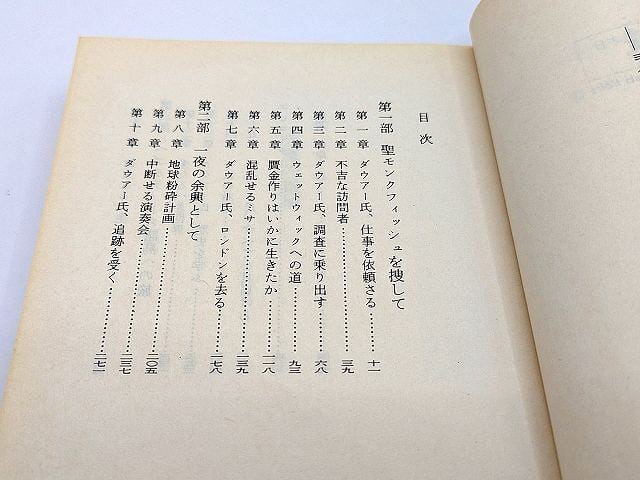 目次
第一部 聖モンクフィッシュを捜して
第一章 ダウアー氏、仕事を依頼さる…………十一
第二章 不吉な訪問者…………三九
第三章 ダウアー氏、調査に乗り出す…………六八
第四章 ウェットウィックへの道…………九三
第五章 贋金作りはいかに生きたか…………一一八
第六章 混乱せるミサ…………一三九
第七章 ダウアー氏、ロンドンを去る…………一七八
第二部 一夜の余興として
第八章 地球粉砕計画…………二〇五
第九章 中断せる演奏会…………二三七
第十章 ダウアー氏、追跡を受く…………二七一